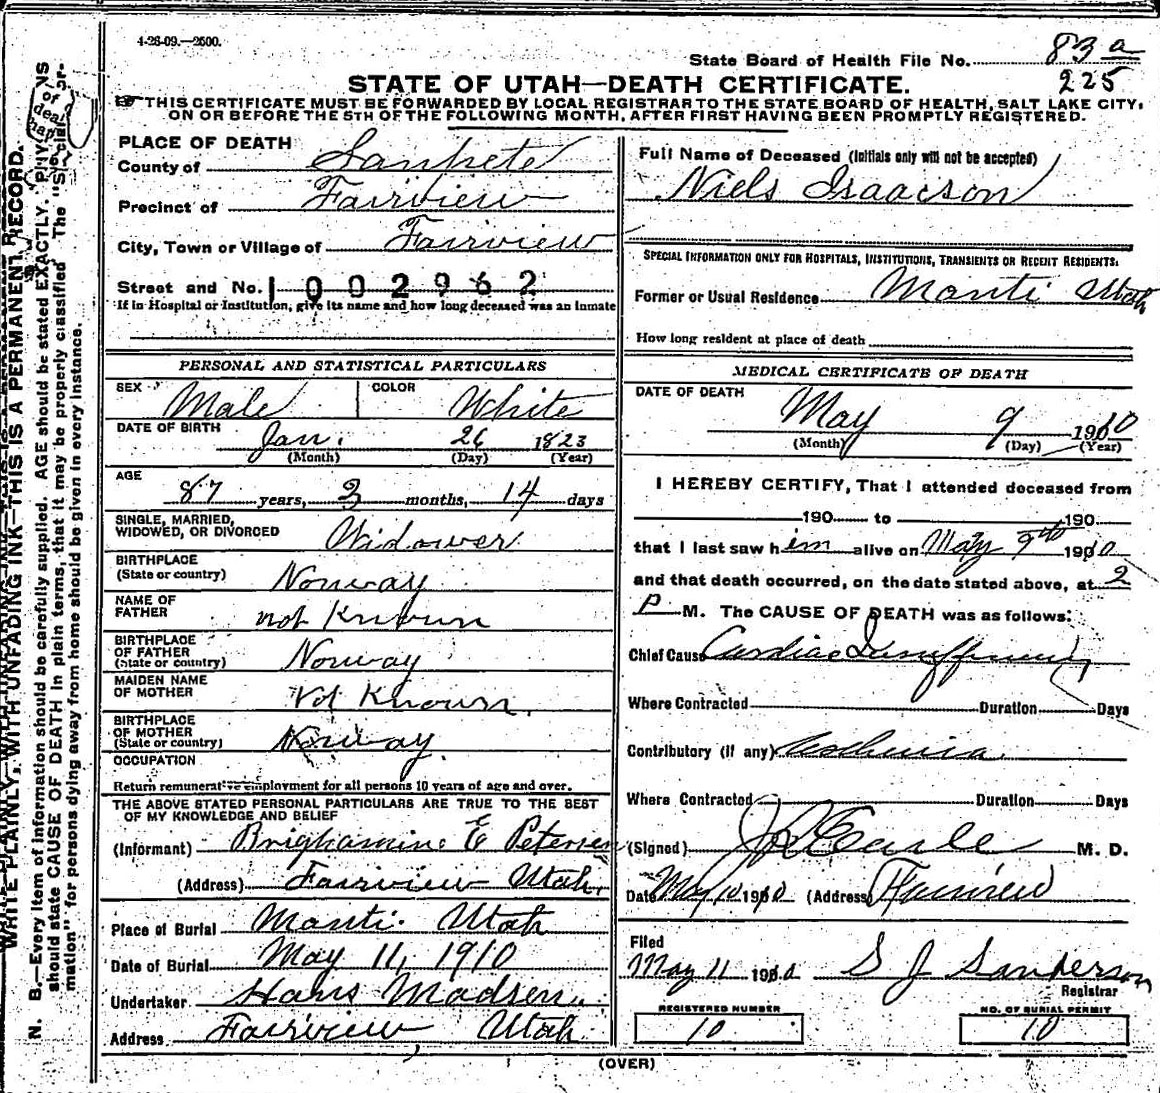 4-28-09.—2500.
State Board of Health File No. 83 a
225
STATE OF UTAH—DEATH CERTIFICATE.
THIS CERTIFICATE MUST BE FORWARDED BY LOCAL REGISTRAR TO THE STATE BOARD OF HEALTH, SALT LAKE CITY,
ON OR BEFORE THE 5TH OF THE FOLLOWING MONTH, AFTER FIRST HAVING BEEN PROMPTLY REGISTERED.
PLACE OF DEATH
County of Sanpete
Precinct of Fairview
City, Town or Village of Fairview
Street and No. 1002962
If in Hospital or Institution, give its name and how long deceased was an inmate
PERSONAL AND STATISTICAL PARTICULARS
SEX Male COLOR White
DATE OF BIRTH Jan. 26 1823
(Month) (Day) (Year)
AGE 87 years, 3 months, 14 days
SINGLE, MARRIED,
WIDOWED, OR DIVORCED Widower
BIRTHPLACE
(State or country) Norway
NAME OF
FATHER not Known
BIRTHPLACE
OF FATHER
(State or country) Norway
MAIDEN NAME
OF MOTHER Not Known.
BIRTHPLACE
OF MOTHER
(State or country) Norway.
OCCUPATION
Return remunerative employment for all persons 10 years of age and over.
THE ABOVE STATED PERSONAL PARTICULARS ARE TRUE TO THE BEST
OF MY KNOWLEDGE AND BELIEF
(Informant) Brighamine E Petersen
(Address) Fairview Utah.
Place of Burial Manti Utah
Date of Burial May 11, 1910
Undertaker Hans Madsen.
Address Fairview, Utah
Full Name of Deceased (Initials only will not be accepted)
Niels Isaacson
SPECIAL INFORMATION ONLY FOR HOSPITALS, INSTITUTIONS, TRANSIENTS OR RECENT RESIDENTS.
Former or Usual Residence Manti Utah
How long resident at place of death
MEDICAL CERTIFICATE OF DEATH
DATE OF DEATH May 9 1910
(Month) (Day) (Year)
I HEREBY CERTIFY, That I attended deceased from
190 to 190
that I last saw him alive on May 9th 1910
and that death occurred, on the date stated above, at 2
P M. The CAUSE OF DEATH was as follows:
Chief Cause Cardiac Insufficiency
Where Contracted Duration Days
Contributory (if any) Asthenia.
Where Contracted Duration Days
(Signed) M. D.
Date May 10 1910 (Address) Fairview
Filed
May 11 1910 S J Sanderson
Registrar
REGISTERED NUMBER
10
NO. OF BURIAL PERMIT
10
(OVER)
WRITE PLAINLY, WITH UNFADING INK—THIS IS A PERMANENT RECORD.
N. B.—Every item of information should be carefully supplied. AGE should be stated EXACTLY. PHYSICIANS
should state CAUSE OF DEATH in plain terms, that it may be properly classified. The "Special Infor-
mation" for persons dying away from home should be given in every instance.